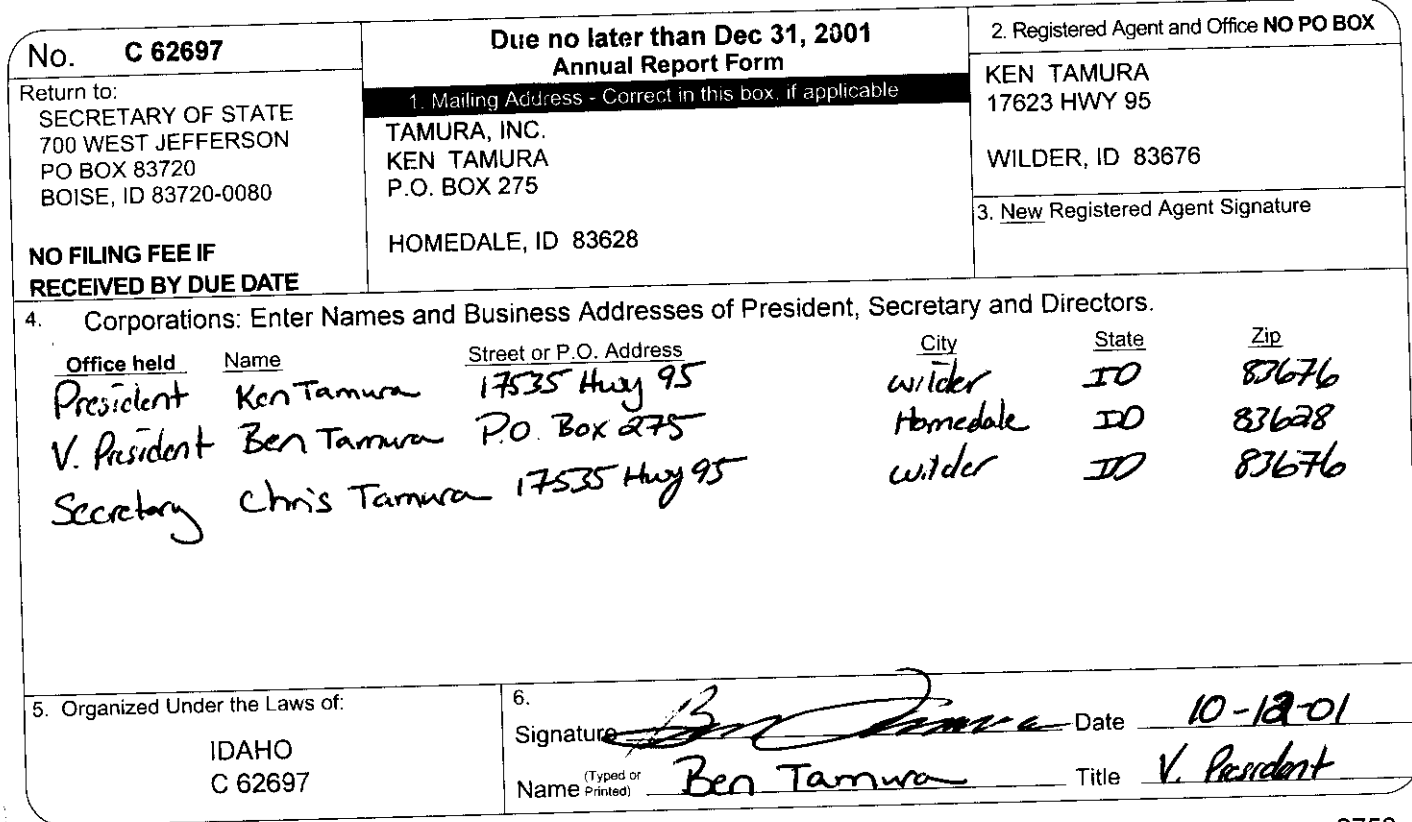 No. C 62697
Return to:
SECRETARY OF STATE
700 WEST JEFFERSON
PO BOX 83720
BOISE, ID 83720-0080
NO FILING FEE IF
RECEIVED BY DUE DATE
Due no later than Dec 31, 2001
Annual Report Form
1. Mailing Address - Correct in this box, if applicable
TAMURA, INC.
KEN TAMURA
P.O. BOX 275
HOMEDALE, ID 83628
2. Registered Agent and Office NO PO BOX
KEN TAMURA
17623 HWY 95
WILDER, ID 83676
3. New Registered Agent Signature
4. Corporations: Enter Names and Business Addresses of President, Secretary and Directors.
Office held Name Street or P.O. Address City State Zip
President Ken Tamura 17535 Hwy 95 wilder ID 83676
V. President Ben Tamura P.O. Box 275 Homedale ID 83628
Secretary Chris Tamura 17535 Hwy 95 wilder ID 83676
5. Organized Under the Laws of:
IDAHO
C 62697
6.
Signature Ben Tamura Date 10-12-01
Name (Typed or Printed) Ben Tamura Title V. President